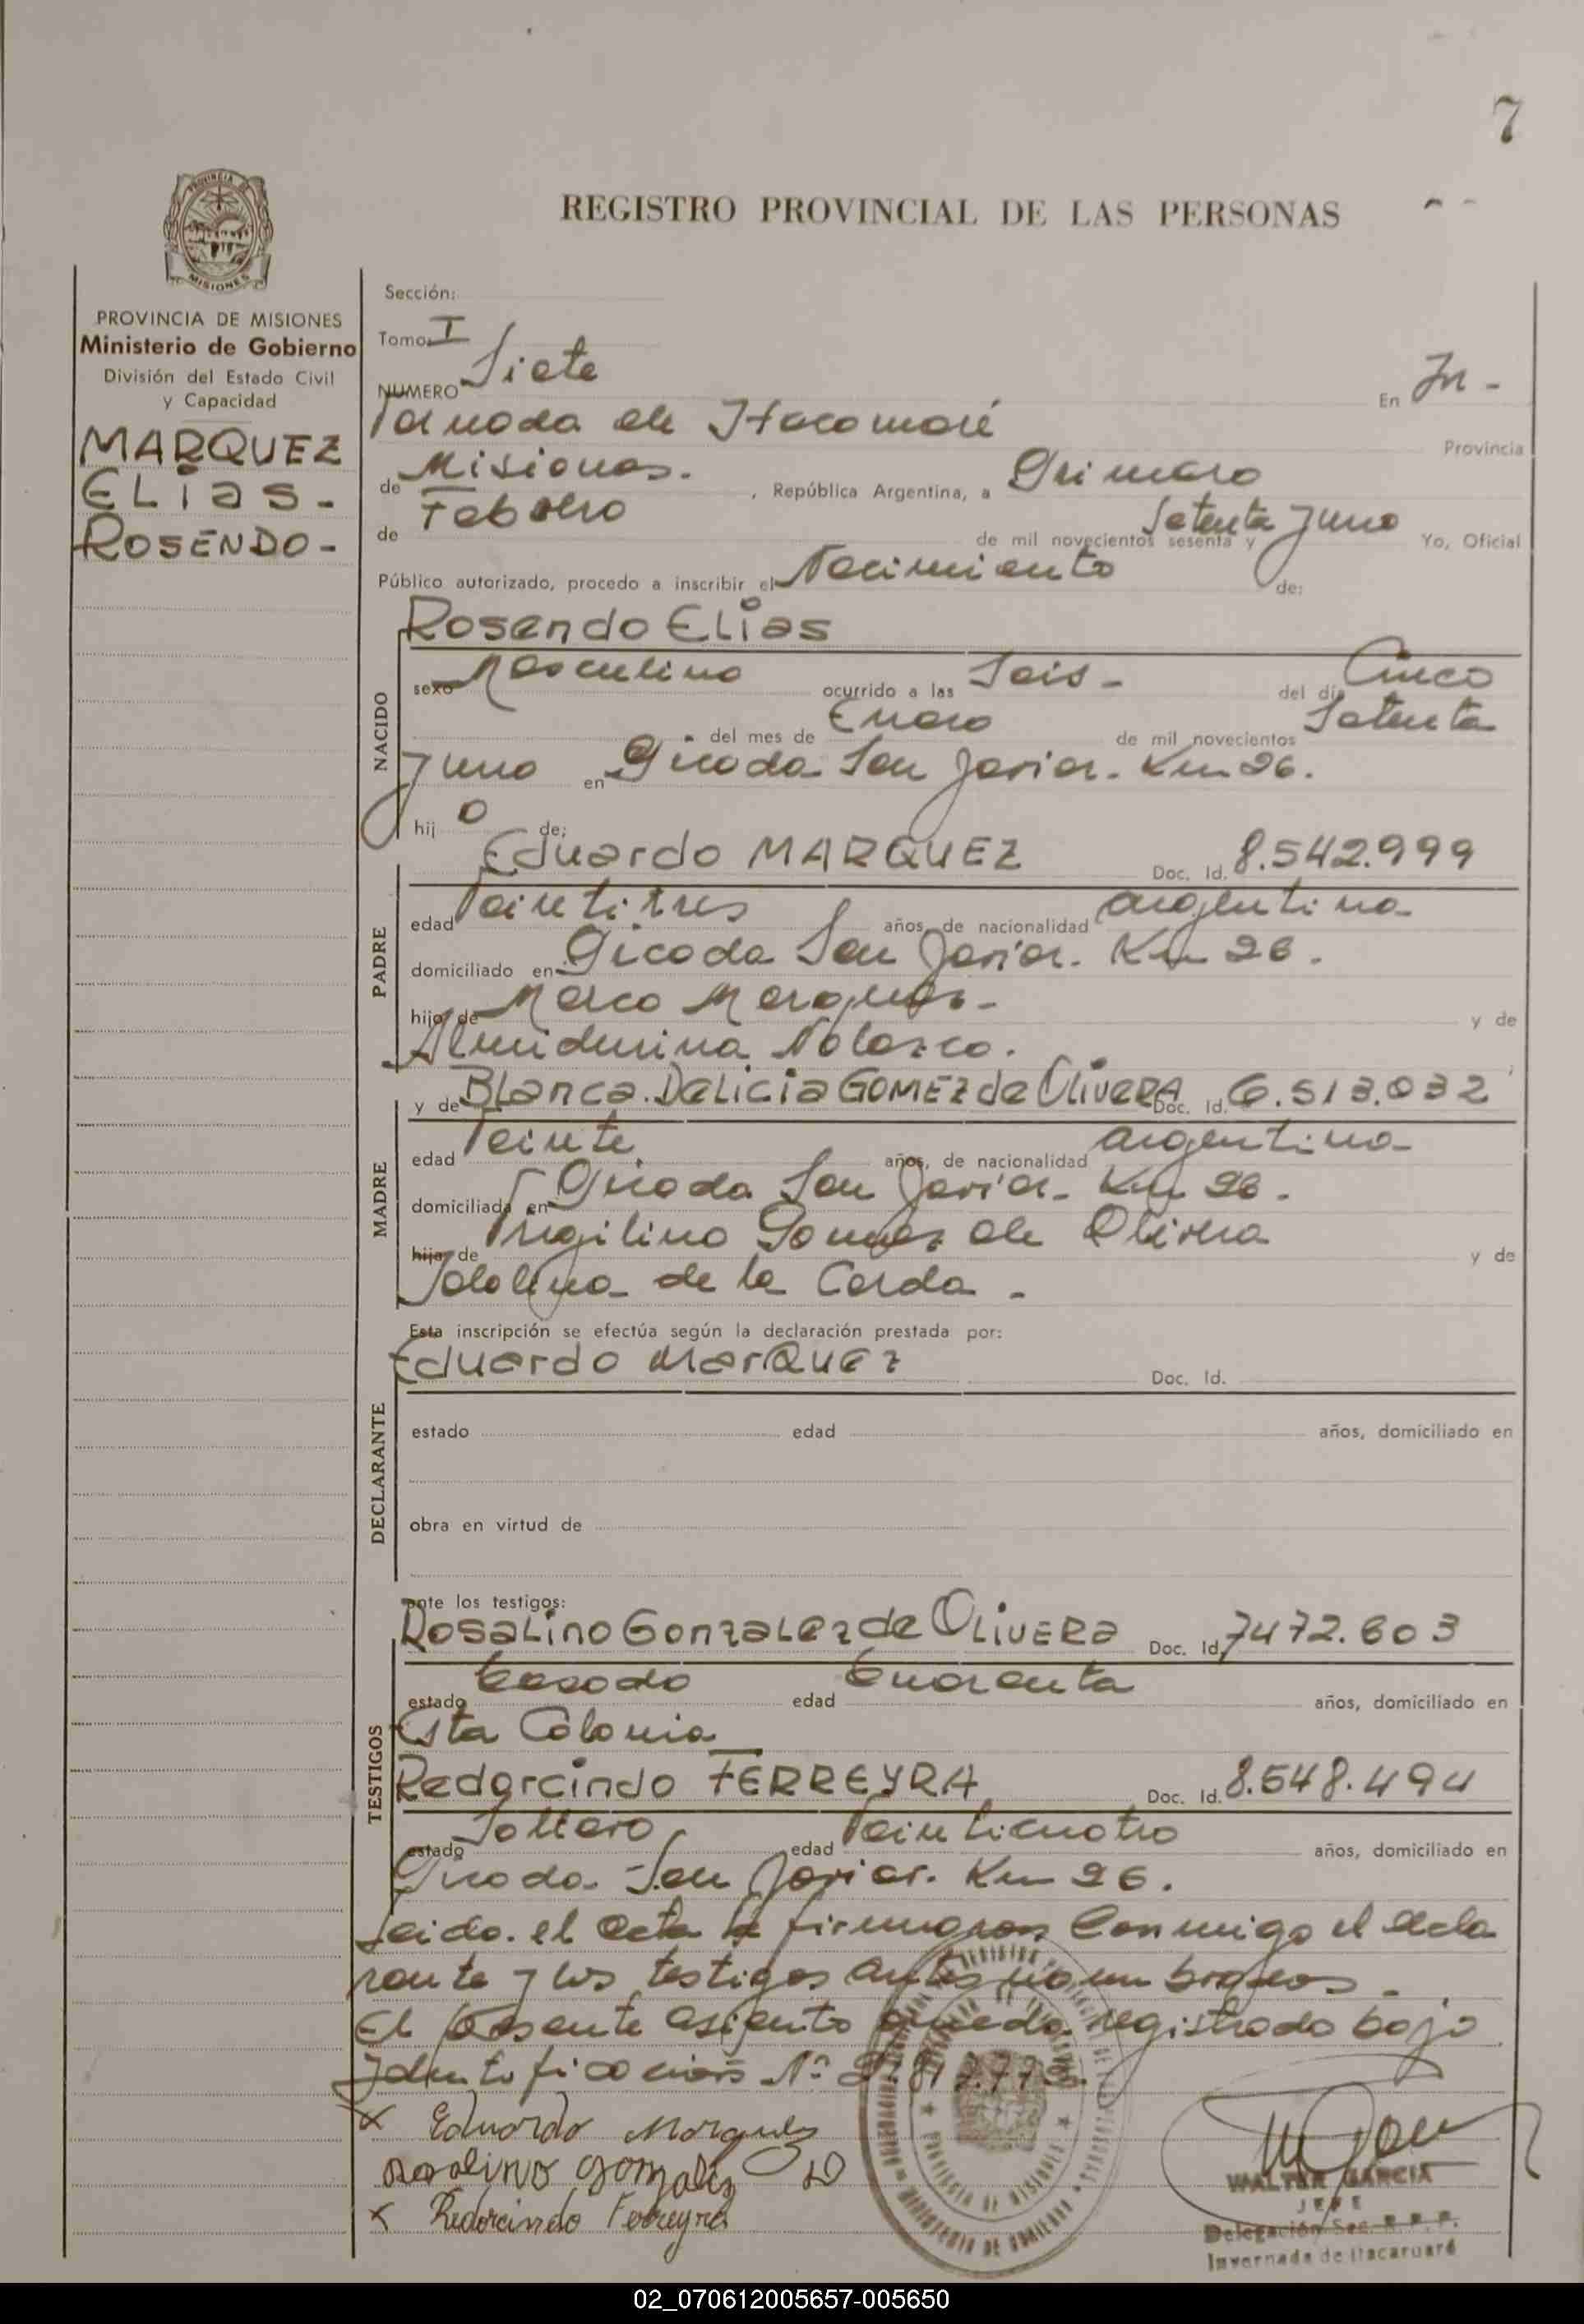 7
REGISTRO PROVINCIAL DE LAS PERSONAS
PROVINCIA DE
MISIONES
PROVINCIA DE MISIONES
Ministerio de Gobierno
División del Estado Civil
y Capacidad
MARQUEZ
ELias -
ROSENDO -
Sección:
Tomo: I
NUMERO Siete En In -
vernada de Itacaruaré Provincia
de Misiones. , República Argentina, a Primero
de Febrero de mil novecientos sesenta y Setenta y uno Yo, Oficial
Público autorizado, procedo a inscribir el Nacimiento de:
NACIDO
Rosendo ELias
sexo Masculino ocurrido a las Seis - del día Cinco
del mes de Enero de mil novecientos Setenta
y uno en Picada San Javier. Km 26.
hij o de:
PADRE
Eduardo MARQUEZ Doc. Id. 8.542.999
edad Veintitres años, de nacionalidad argentina
domiciliado en Picada San Javier. Km 26.
hijo de Marco Marques - y de
Nolasco.
MADRE
y de Blanca. Delicia GOMEZ de OliveRA Doc. Id. 6.513.032
edad Veinte años, de nacionalidad argentina
domiciliada en Picada San Javier. Km 26.
hija de Virgilino Gomez de Olivera y de
de la Cerda -
DECLARANTE
Esta inscripción se efectúa según la declaración prestada por:
Eduardo MarQuez Doc. Id.
estado edad años, domiciliado en
obra en virtud de
TESTIGOS
ante los testigos:
Rosalino Gonzalez de OLiveRa Doc. Id. 7472.603
estado Casado edad Cuarenta años, domiciliado en
Esta Colonia
Redorcindo FERREYRA Doc. Id. 8.548.494
estado Soltero edad Veinticuatro años, domiciliado en
Picada San Javier. Km 26.
Leida. el acta la firmaron Conmigo el decla
rante y los testigos antes nombrados.
El presente asiento queda registrado bajo
Identificación Nº
x Eduardo Marquez
Rosalino Gonzalez
x Redorcindo Ferreyra
PROVINCIA DE MISIONES
MINISTERIO DE GOBIERNO
WALTER GARCIA
JEFE
Delegación Sec. R. P. P.
Invernada de Itacaruaré
02_070612005657-005650